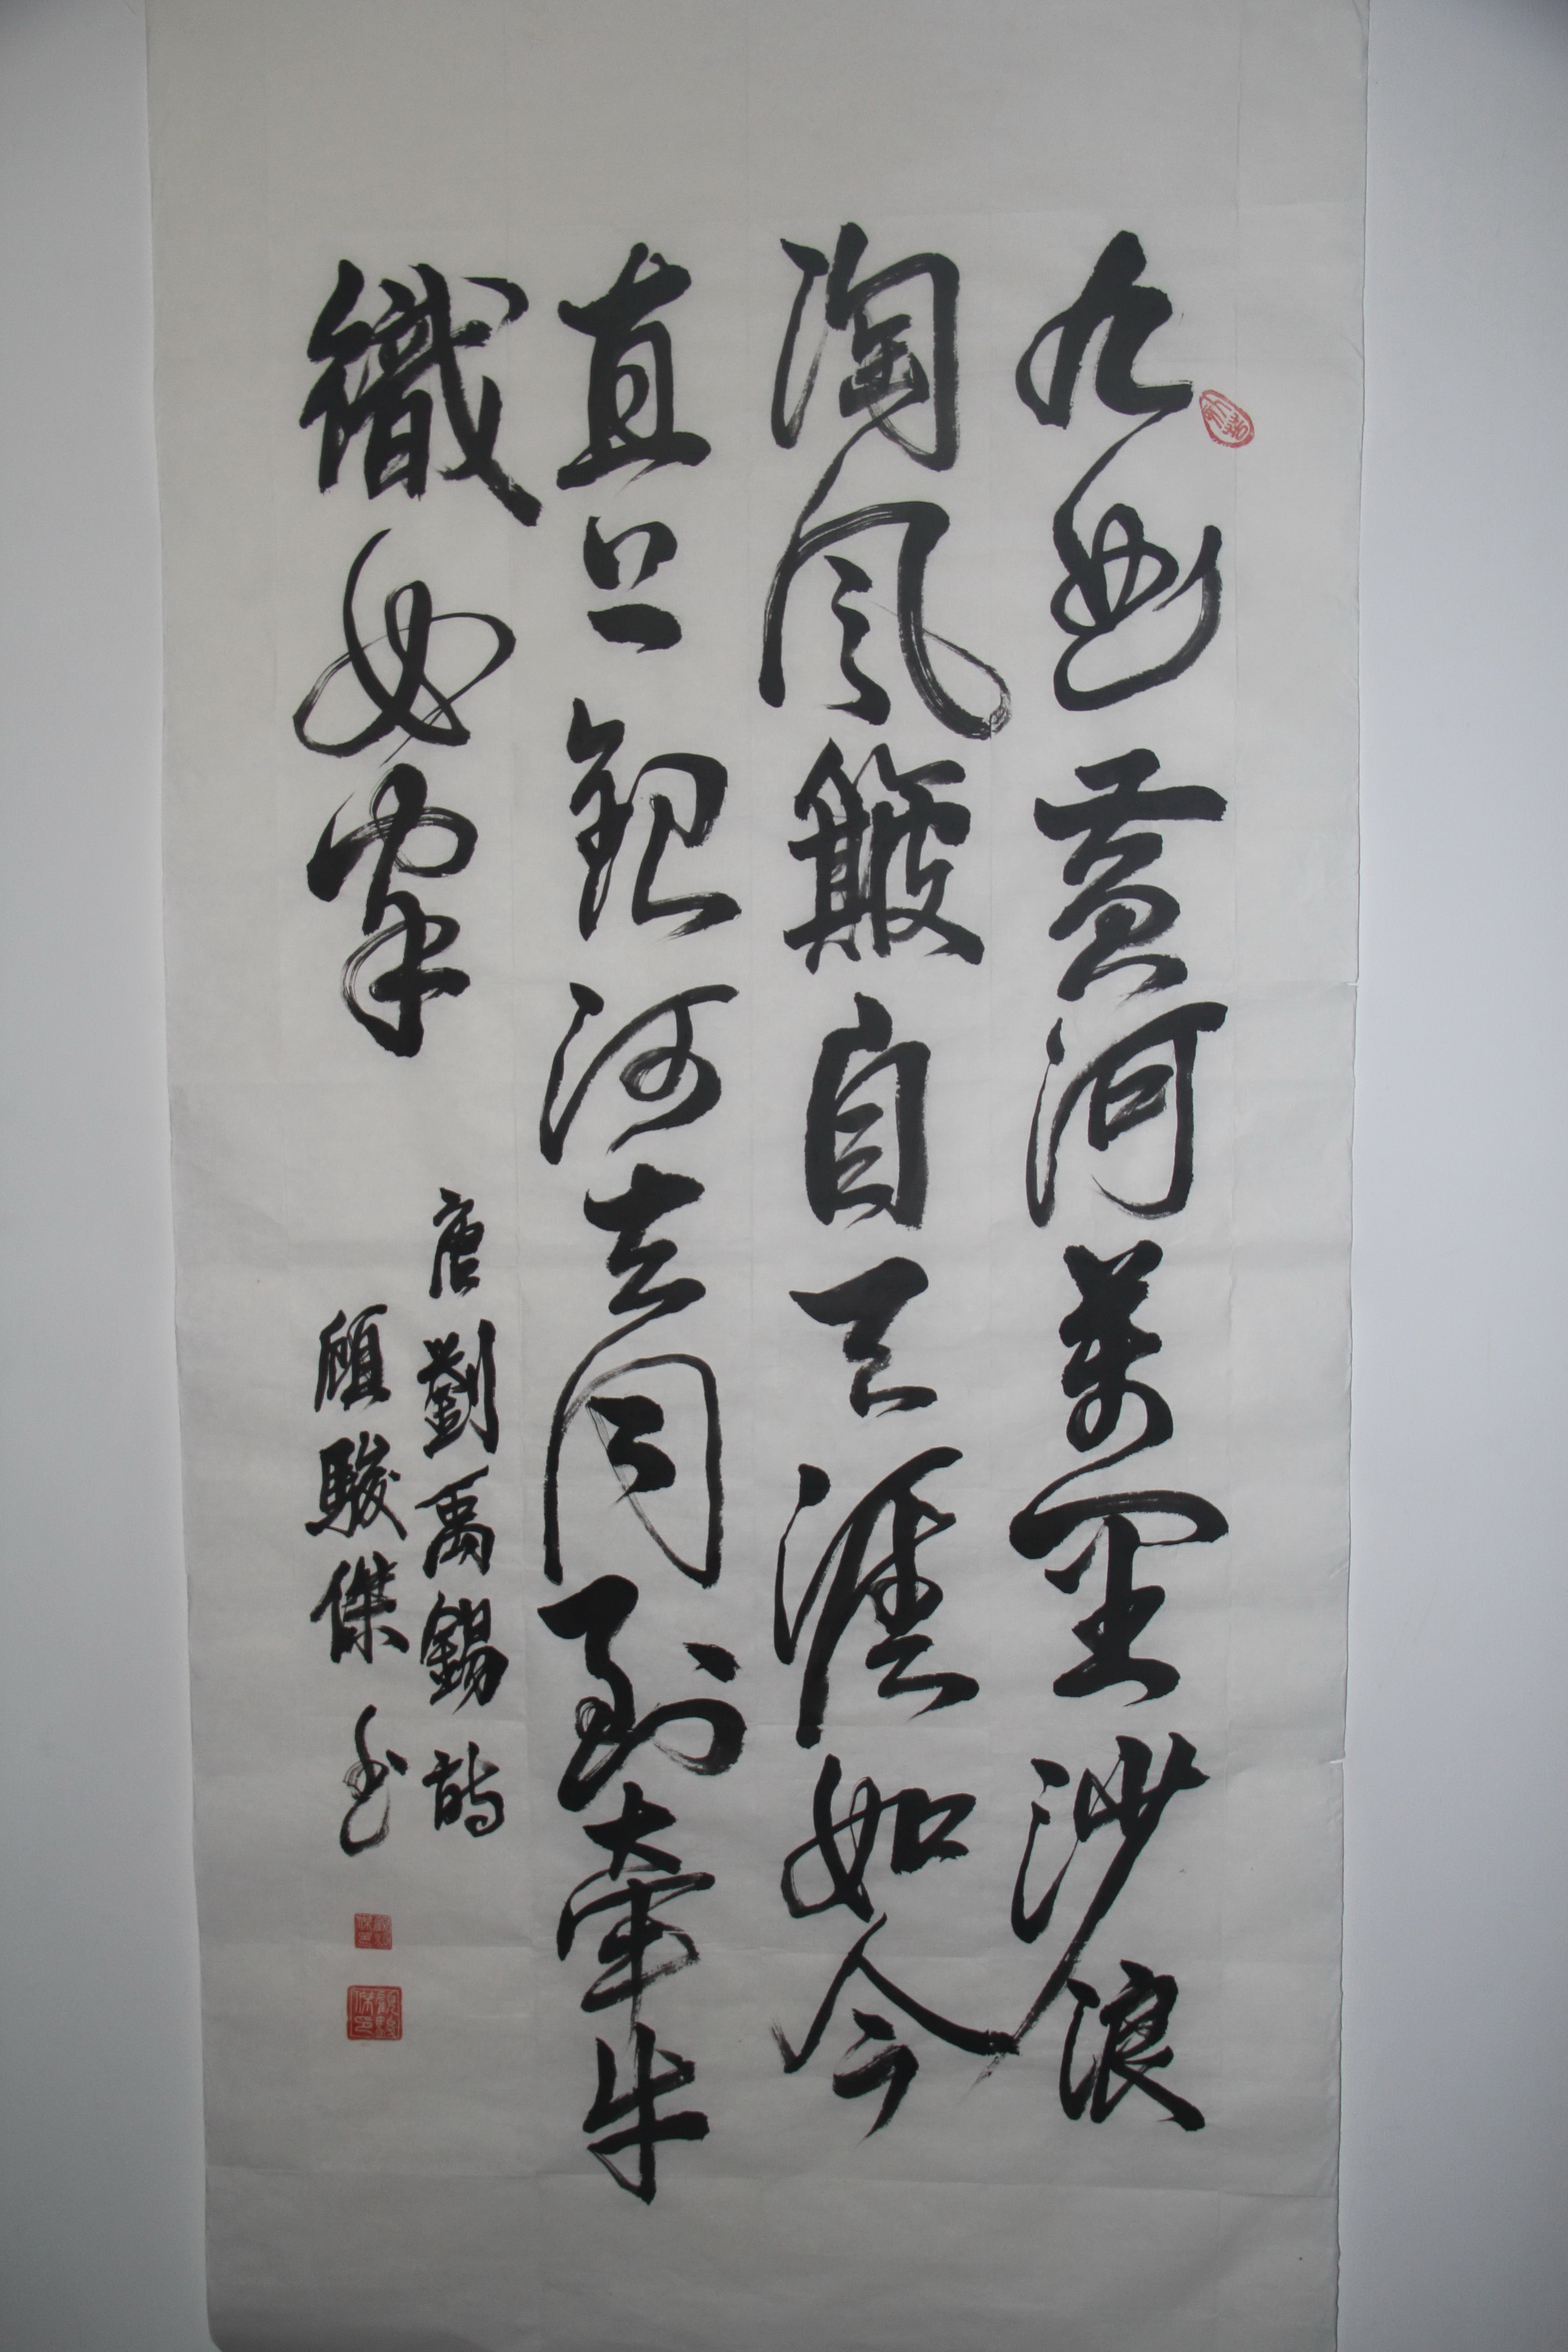 九曲黃河萬里沙浪
淘風簸自天涯如今
直上銀河去同到牽牛
織女家
唐劉禹錫詩
顧駿傑書